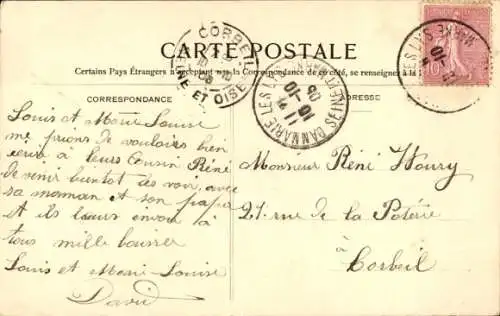 CARTE POSTALE
Certains Pays Étrangers n'acceptant pas la Correspondance de ce côté, se renseigner à la
CORRESPONDANCE
ADRESSE
CORBEIL
SEINE ET OISE
DAMMARIE LES LYS
11 10
06
10
Louis et Marie Louise
me prions de vouloir bien
écrire à leurs Cousin Réné
de venir bientot les voir, avec
sa maman et son papa
et ils leurs envoi à
tous mille baisers
Louis et Marie-Louise
David
Monsieur Réné Houry
27 rue de la Poterie
à
Corbeil